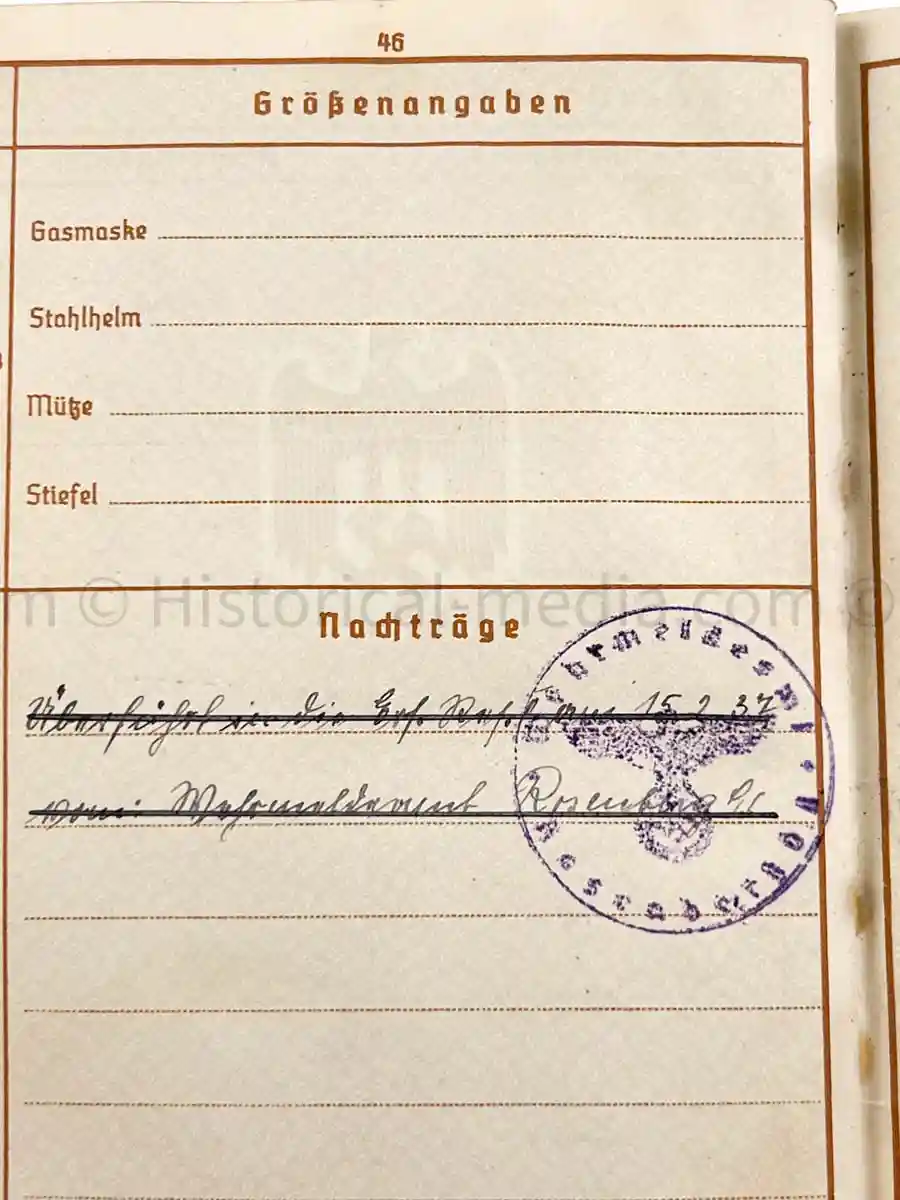 46
Größenangaben
Gasmaske
Stahlhelm
Mütze
Stiefel
m © Historical-media.com ©
Nachträge
Überführt in die Ers. Res. I am 15.2.37
vom Wehrmeldeamt Rosenberg
Wehrmeldeamt Rosenberg O/S